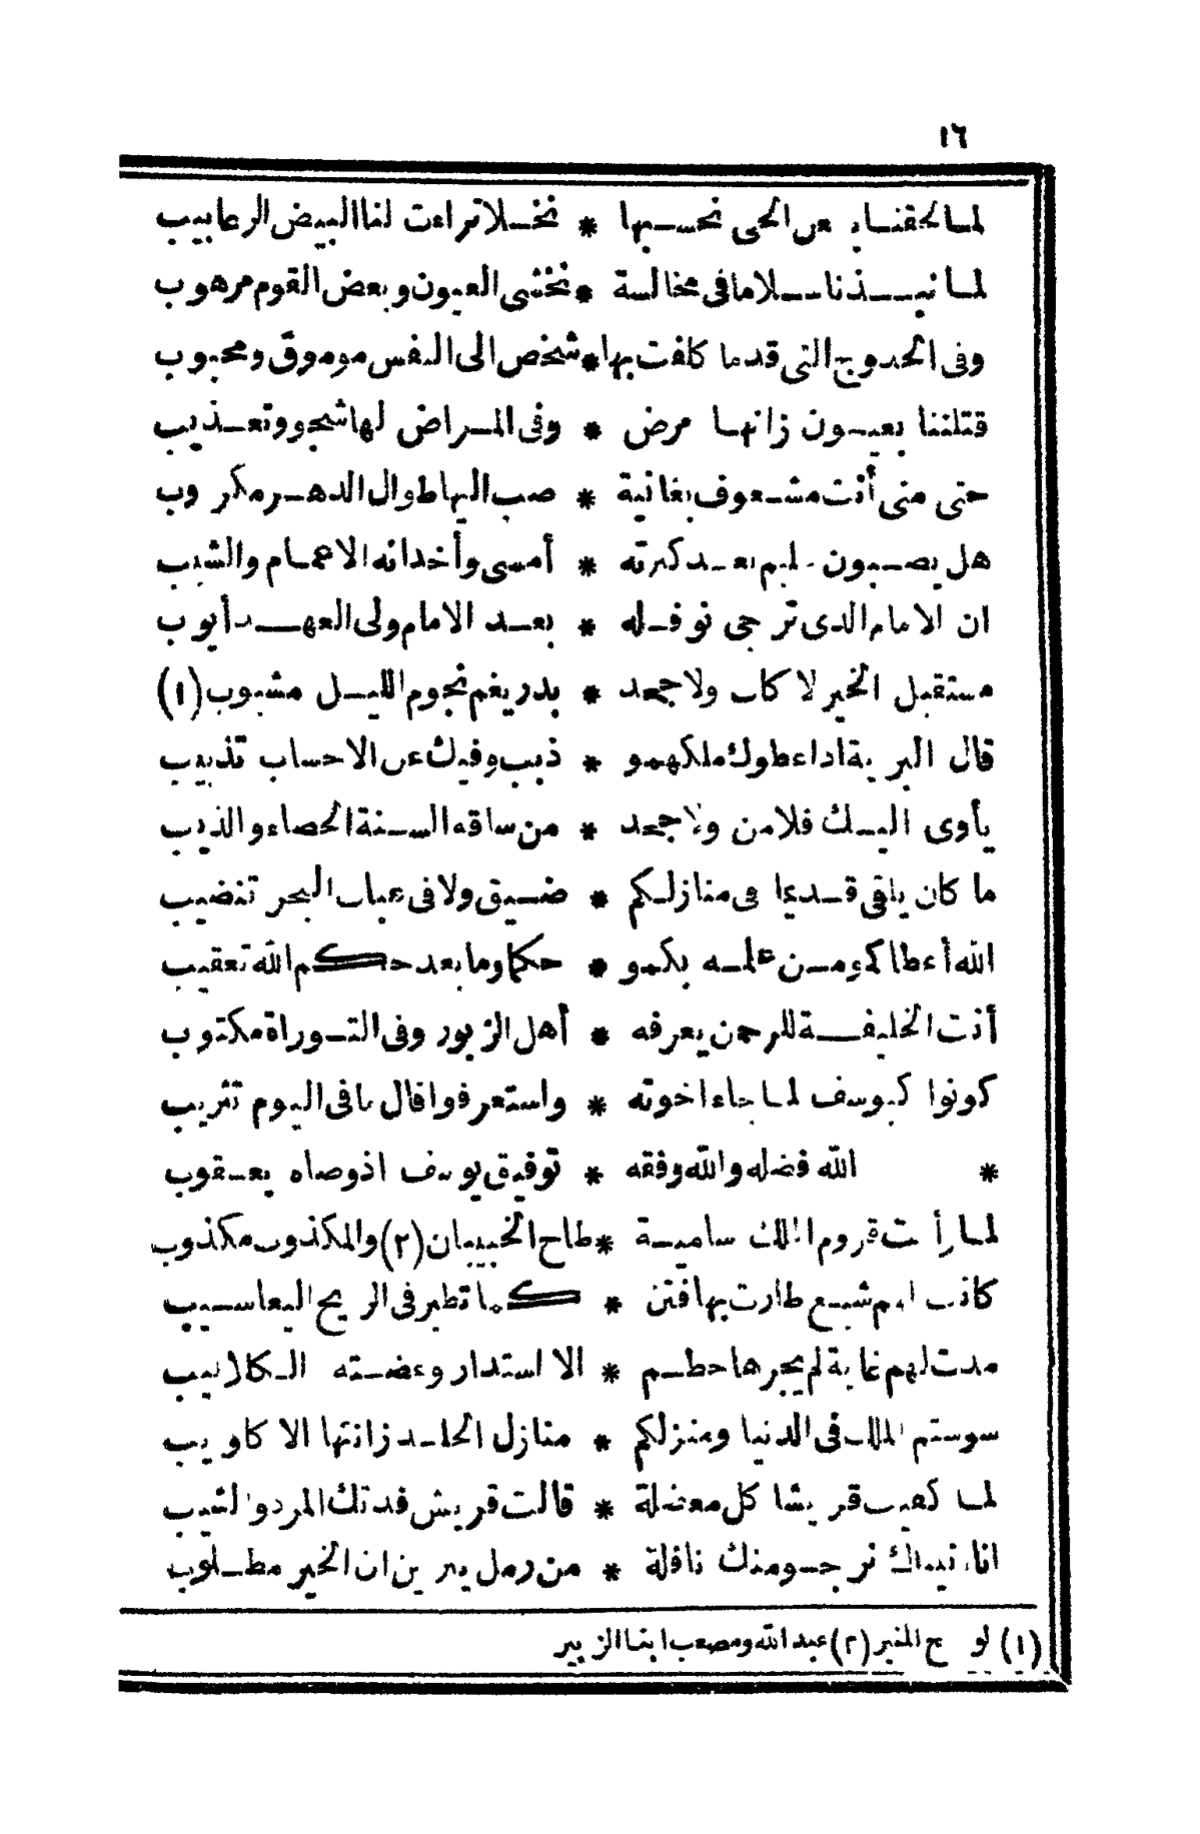 ١٦
لما لحقنا بـ عن الحى نحسبها * نخلا تراءت لنا البيض الرعابيب
لما نبـذنا سلاما فى مخالسة * نخشى العيون وبعض القوم مرهوب
وفى الحدوج التى قدما كلفت بها * شخص الى النفس موموق ومحبوب
قتلننا بعيون زانها مرض * وفى المراض لها شجو وتعذيب
حتى متى أنت مشعوف بغانية * صب اليها طوال الدهر مكروب
هل يصبون حليم بعد كبرته * أمسى وأخدانه الاعمام والشيب
ان الامام الذى ترجى نوفله * بعد الامام ولى العهد أيوب
مستقبل الخير لا كاب ولا جحد * بدر يغم نجوم الليل مشبوب (١)
قال البرية اذ اعطوك ملكهمو * ذبب وفيك عن الاحساب تذبيب
يأوى اليك فلا من ولا جحد * من ساقه السنة الحصاء والذيب
ما كان يلقى قديما فى منازلكم * ضيق ولا فى عباب البحر تنضيب
الله أعطاكم من علمه بكمو * حكما وما بعد حكم الله تعقيب
أنت الخليفة للرحمن يعرفه * أهل الزبور وفى التوراة مكتوب
كونوا كيوسف لما جاء اخوته * واستعرفوا قال ما فى اليوم تثريب
* الله فضله والله وفقه * توفيق يوسف اذ وصاه يعقوب
لما رأت قروم الملك سامية * طاح الخبيبان (٢) والمكذوب مكذوب
كانت لهم شيع طارت بها فتن * كما تطير فى الريح اليعاسيب
مدت لهم غاية لم يجرها حطم * الا استدار وعضته الكلاليب
سوستم الملك فى الدنيا ومنزلكم * منازل الخلد زانتها الاكاويب
لما كفيت قريشا كل معضلة * قالت قريش فدتك المرد والشيب
انا اتيناك نرجو منك نافلة * من رمل يبرين ان الخير مطلوب
(١) لو ح المنبر (٢) عبد الله ومصعب ابنا الزبير